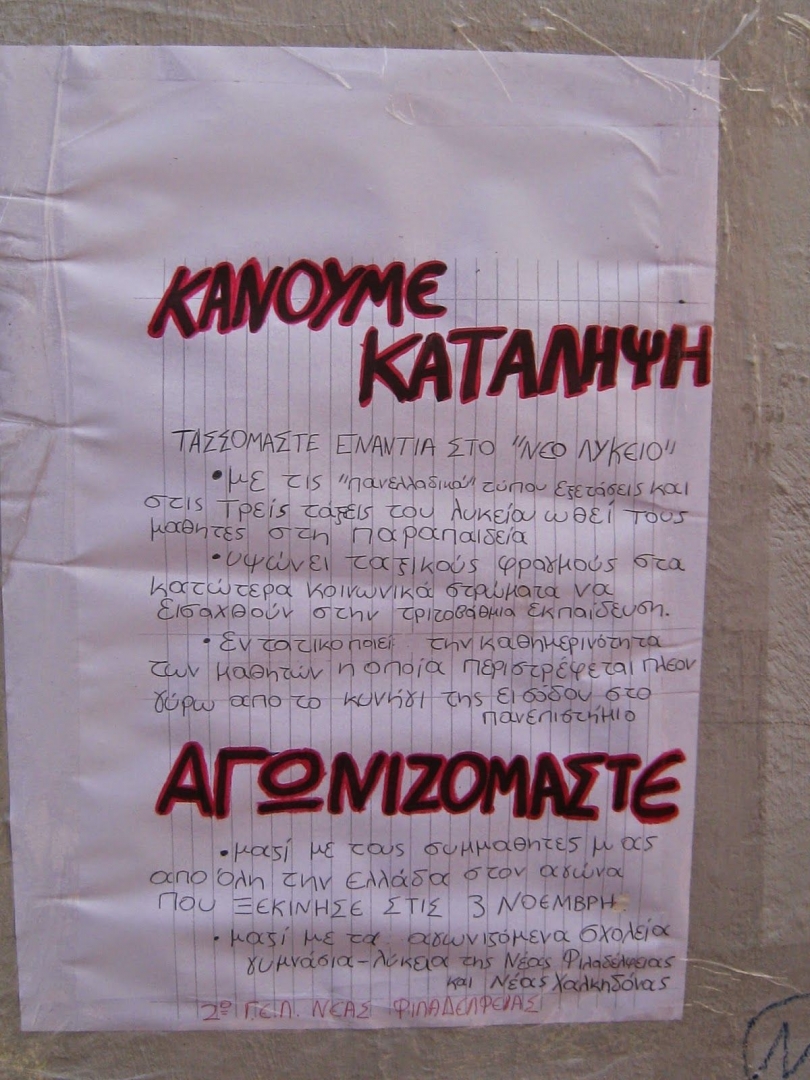 ΚΑΝΟΥΜΕ
ΚΑΤΑΛΗΨΗ
ΤΑΣΣΟΜΑΣΤΕ ΕΝΑΝΤΙΑ ΣΤΟ "ΝΕΟ ΛΥΚΕΙΟ"
• με τις "πανελλαδικού" τύπου εξετάσεις και
στις Τρείς τάξεις του λυκείου ωθεί τους
μαθητές στη παραπαιδεία
• υψώνει ταξικούς φραγμούς στα
κατώτερα κοινωνικά στρώματα να
εισαχθούν στην τριτοβάθμια εκπαίδευση.
• Εντατικοποιεί την καθημερινότητα
των μαθητών η οποία περιστρέφεται πλέον
γύρω από το κυνήγι της εισόδου στο
πανεπιστήμιο
ΑΓΩΝΙΖΟΜΑΣΤΕ
• μαζί με τους συμμαθητές μας
από όλη την Ελλάδα στον αγώνα
ΠΟΥ ΞΕΚΙΝΗΣΕ ΣΤΙΣ 3 ΝΟΕΜΒΡΗ
• μαζί με τα αγωνιζόμενα σχολεία
γυμνάσια-λύκεια της Νέας Φιλαδέλφειας
και Νέας Χαλκηδόνας
2ο Γ.Ε.Λ. ΝΕΑΣ ΦΙΛΑΔΕΛΦΕΙΑΣ